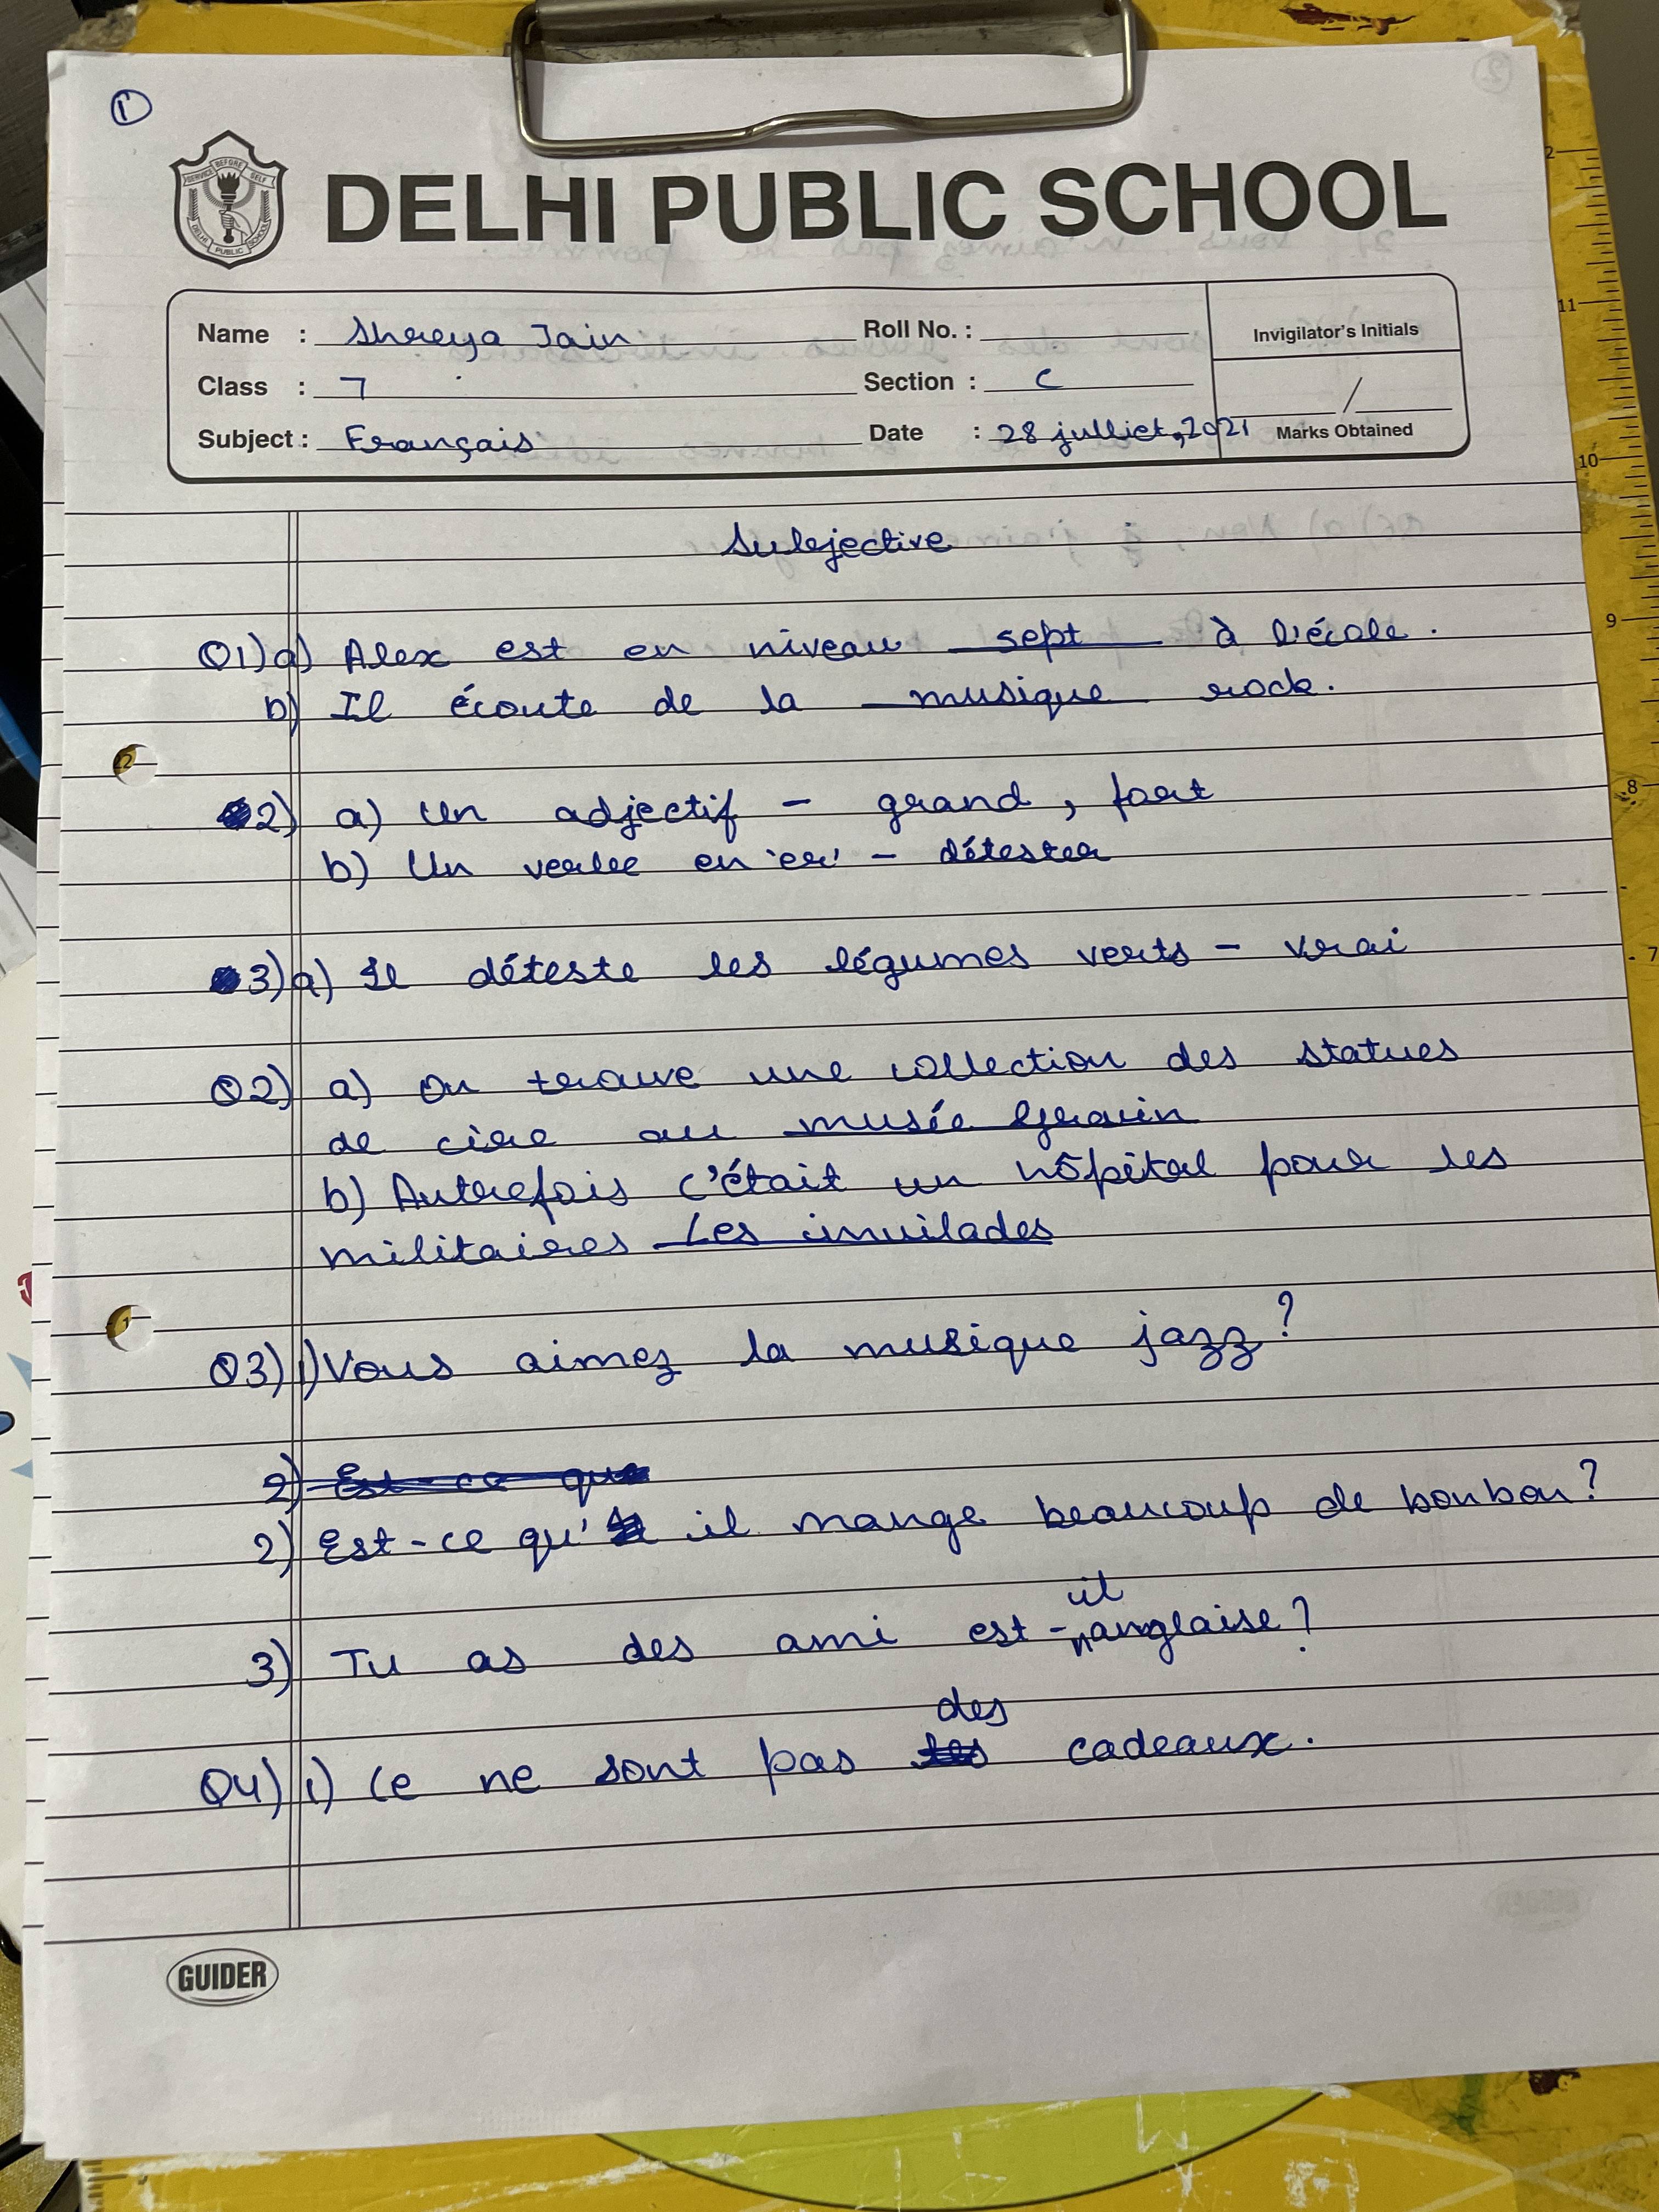 1
2
SERVICE BEFORE SELF
DELHI PUBLIC SCHOOL
DELHI PUBLIC SCHOOL
Name : Shreya Jain Roll No. : Invigilator's Initials
Class : 7 Section : C /
Subject : Français Date : 28 julliet, 2021 Marks Obtained
Subjective
Q1) a) Alex est en niveau sept à l'école.
b) Il écoute de la musique rock.
2) a) Un adjectif - grand, fort
b) Un verbe en 'er' - détester
3) a) Il déteste les légumes verts - vrai
Q2) a) On trouve une collection des statues
de cire au musée Grévin
b) Autrefois c'était un hôpital pour les
militaires Les inuilades
Q3) 1) Vous aimez la musique jazz?
2) Est-ce que
2) Est-ce qu' il mange beaucoup de bonbon?
il
3) Tu as des ami est-^anglaise?
des
Q4) 1) Ce ne sont pas les cadeaux.
GUIDER
12
11
10
9
8
7